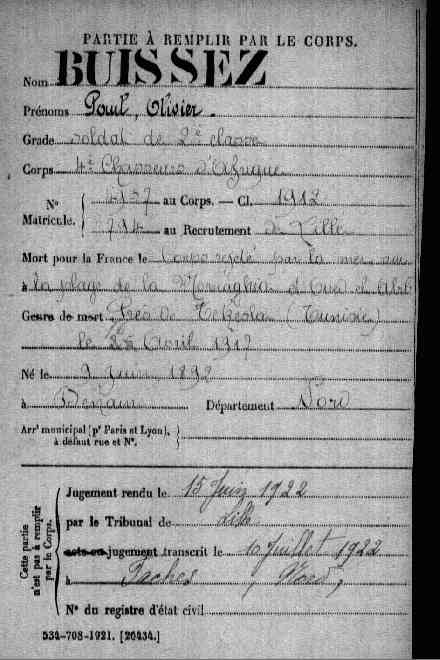 PARTIE À REMPLIR PAR LE CORPS.
Nom BUISSEZ
Prénoms Paul, Olivier.
Grade soldat de 2e classe
Corps 4e Chasseurs d'Afrique
No 4137 au Corps. — Cl. 1912
Matricule. 794 au Recrutement de Lille
Mort pour la France le Corps rejeté par la mer sur
à la plage de la d'Oued el Abid
Genre de mort Près de (Tunisie)
le Avril 1917
Né le 9 Juin 1892
à Denain Département Nord
Arrt municipal (pr Paris et Lyon),
à défaut rue et No.
Cette partie
n'est pas à remplir
par le Corps.
Jugement rendu le 15 Juin 1922
par le Tribunal de Lille
acte ou jugement transcrit le 10 Juillet 1922
à Faches (Nord)
No du registre d'état civil
534-708-1921. [26434.]